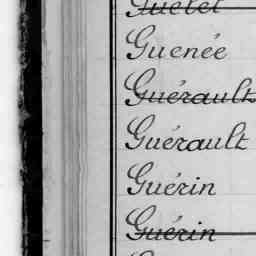 Guétet
Guenée
Guérault
Guérault
Guérin
Guérin